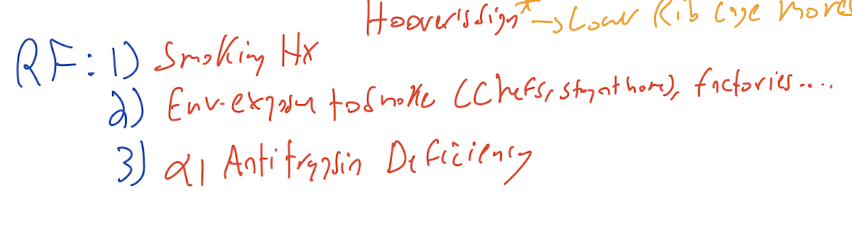 Hoover's sign* → Lower Rib cage moves
RF: 1) Smoking Hx
2) Env. exposu to smoke (Chefs, stay at home), factories....
3) α1 Antitrypsin Deficiency